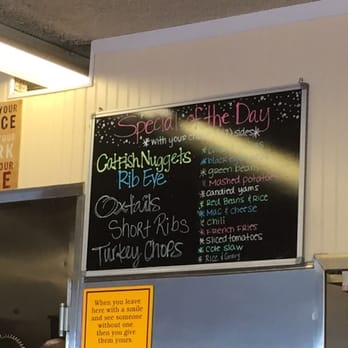 Special of the Day
*with your choice (2) sides*
Catfish Nuggets
Rib Eye
Oxtails
Short Ribs
Turkey Chops
* black eye
* green beans
* Mashed potatoes
* Candied yams
* Red Beans & Rice
* Mac & cheese
* Chili
* French Fries
* Sliced tomatoes
* Cole slaw
* Rice & Gravy
YOUR
YOUR
When you leave
here with a smile
and see someone
without one
then you give
them yours.